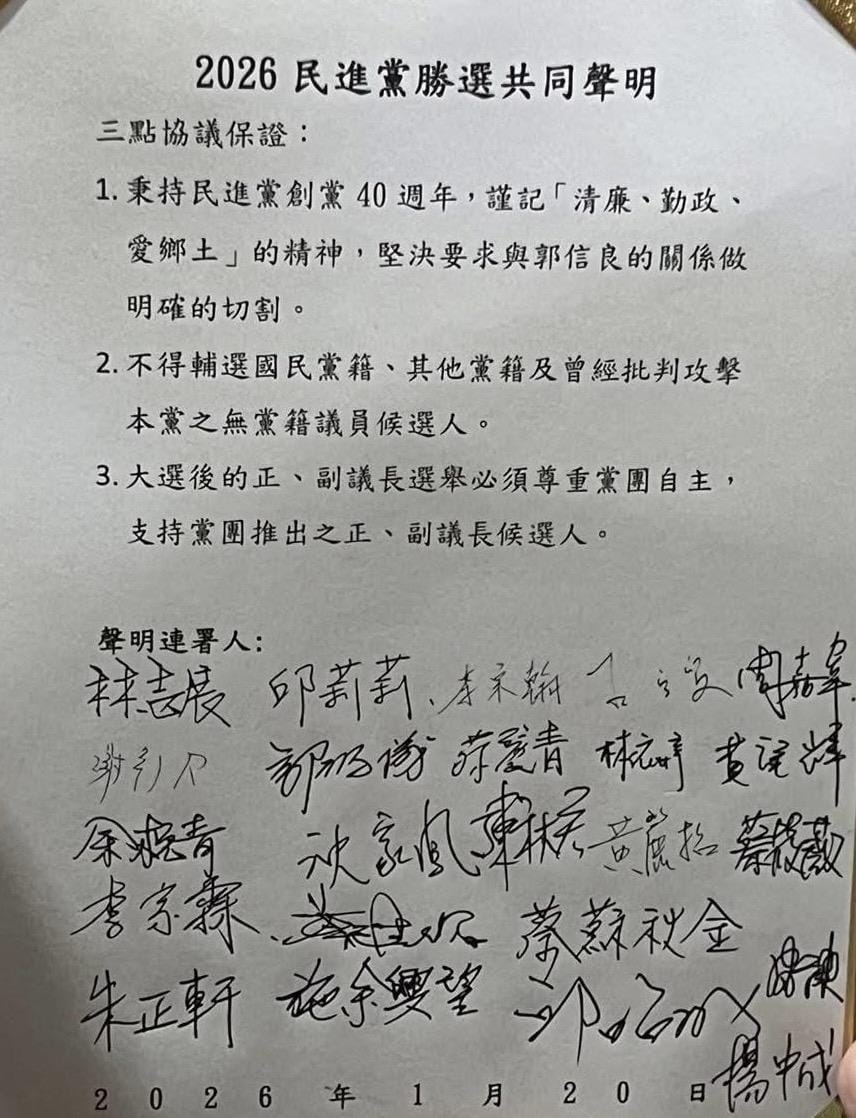 2026 民進黨勝選共同聲明
三點協議保證：
1. 秉持民進黨創黨 40 週年，謹記「清廉、勤政、
愛鄉土」的精神，堅決要求與郭信良的關係做
明確的切割。
2. 不得輔選國民黨籍、其他黨籍及曾經批判攻擊
本黨之無黨籍議員候選人。
3. 大選後的正、副議長選舉必須尊重黨團自主，
支持黨團推出之正、副議長候選人。
聲明連署人:
林志展 邱莉莉、李宗翰 周嘉韋
蔡筱薇
李宗霖 蔡蘇秋金
朱正軒 施余興望
楊中成
2026 年 1 月 20 日